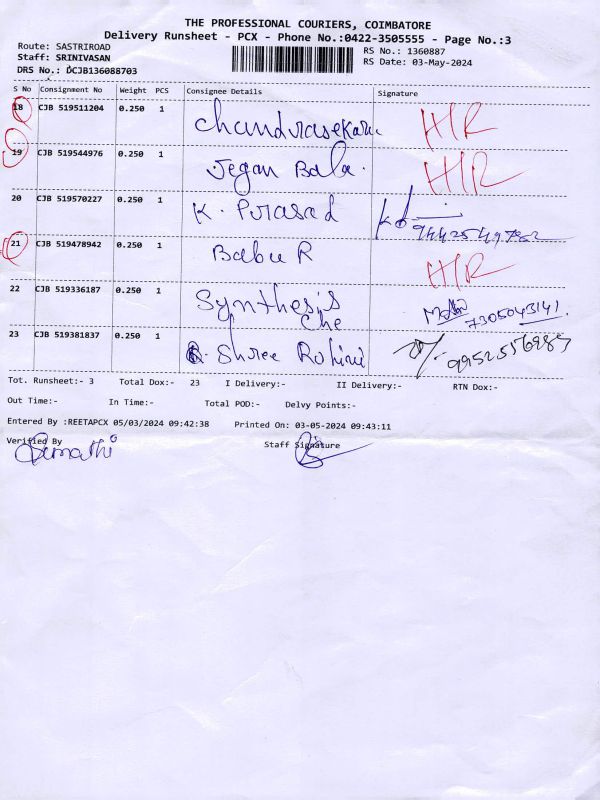 THE PROFESSIONAL COURIERS, COIMBATORE
Delivery Runsheet - PCX - Phone No.:0422-3505555 - Page No.:3
Route: SASTRIROAD
RS No.: 1360887
Staff: SRINIVASAN
RS Date: 03-May-2024
DRS No.: DCJB136088703
S No Consignment No Weight PCS Consignee Details Signature
18 CJB 519511204 0.250 1 Chandrasekaran H/R
19 CJB 519544976 0.250 1 Jegan Bala. H/R
20 CJB 519570227 0.250 1 K. Prasad
21 CJB 519478942 0.250 1 Babu R H/R
22 CJB 519336187 0.250 1 Synthesis Che 7305043141.
23 CJB 519381837 0.250 1 Shree Rohini
Tot. Runsheet:- 3 Total Dox:- 23 I Delivery:- II Delivery:- RTN Dox:-
Out Time:- In Time:- Total POD:- Delvy Points:-
Entered By :REETAPCX 05/03/2024 09:42:38 Printed On: 03-05-2024 09:43:11
Verified By Staff Signature